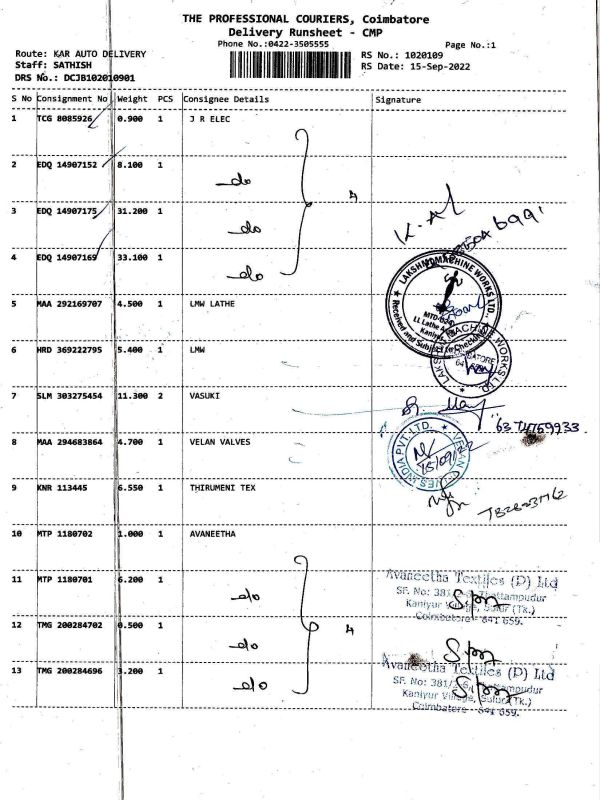 THE PROFESSIONAL COURIERS, Coimbatore
Delivery Runsheet - CMP
Phone No.:0422-3505555 Page No.:1
Route: KAR AUTO DELIVERY RS No.: 1020109
Staff: SATHISH RS Date: 15-Sep-2022
DRS No.: DCJB102010901
S No Consignment No Weight PCS Consignee Details Signature
1 TCG 8085926 0.900 1 J R ELEC
2 EDQ 14907152 8.100 1 do
4
3 EDQ 14907175 31.200 1 do
4 EDQ 14907169 33.100 1 do
LAKSHMI MACHINE WORKS LTD.,
5 MAA 292169707 4.500 1 LMW LATHE
Received and Subject to Checking
6 HRD 369222795 5.400 1 LMW
LAKSHMI MACHINE WORKS LTD.
COIMBATORE
7 SLM 303275454 11.300 2 VASUKI
6374769933
8 MAA 294683864 4.700 1 VELAN VALVES
VELAN VALVES INDIA PVT. LTD.
15/09/22
9 KNR 113445 6.550 1 THIRUMENI TEX
10 MTP 1180702 1.000 1 AVANEETHA
11 MTP 1180701 6.200 1 do
Avaneetha Textiles (P) Ltd
SF. No: 381 Thottampudur
Kaniyur Village, Sulur (Tk.)
Coimbatore - 641 659.
12 TMG 200284702 0.500 1 do
4
13 TMG 200284696 3.200 1 do
Avaneetha Textiles (P) Ltd
SF. No: 381 Thottampudur
Kaniyur Village, Sulur (Tk.)
Coimbatore - 641 659.